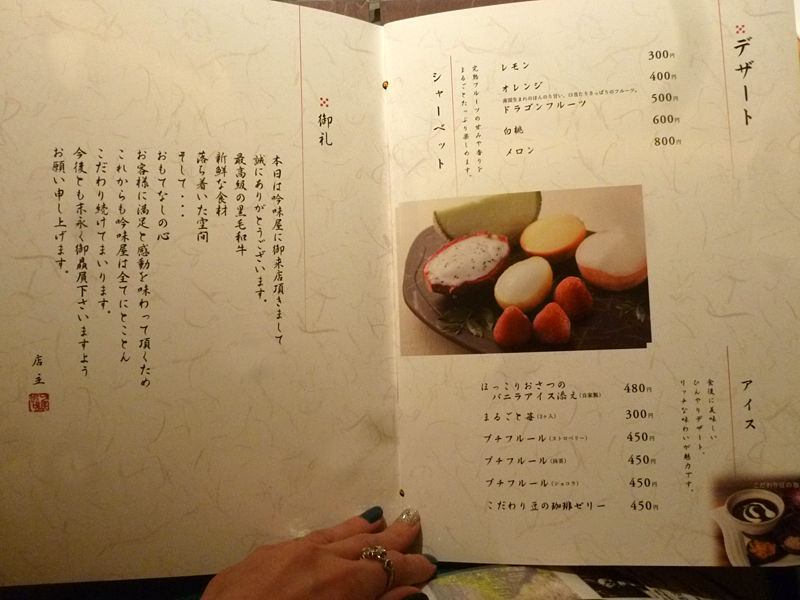 デザート
シャーベット
完熟フルーツの甘みや香りを
まるごとたっぷり楽しめます。
レモン 300円
オレンジ 400円
南国生まれのほんのり甘い、口当たりさっぱりのフルーツ。
ドラゴンフルーツ 500円
白桃 600円
メロン 800円
アイス
食後に美味しい
ひんやりデザート。
リッチな味わいが魅力です。
ほっこりおさつの
バニラアイス添え(自家製) 480円
まるごと苺(3ヶ入) 300円
プチフルール(ストロベリー) 450円
プチフルール(抹茶) 450円
プチフルール(ショコラ) 450円
こだわり豆の珈琲ゼリー 450円
こだわり豆の珈
御礼
本日は吟味屋に御来店頂きまして
誠にありがとうございます。
最高級の黒毛和牛
新鮮な食材
落ち着いた空間
そして・・・
おもてなしの心
お客様に満足と感動を味わって頂くため
これからも吟味屋は全てにとことん
こだわり続けてまいります。
今後とも末永く御贔屓下さいますよう
お願い申し上げます。
店主